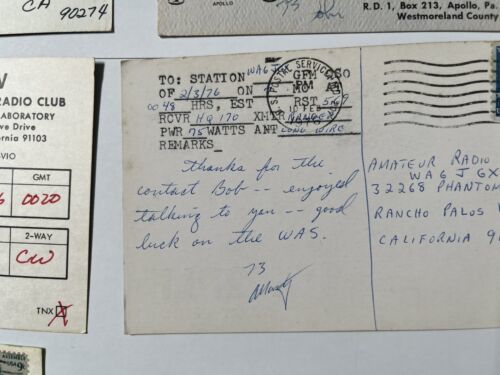 CA
90274
APOLLO
73
R.D. 1, Box 213, Apollo, Pa.
Westmoreland County
V
RADIO CLUB
LABORATORY
ve Drive
ifornia 91103
VIO
GMT
6 0020
2-WAY
CW
TNX
TO: STATION WA6 J
OF 2/3/76 ON
0048 HRS, EST RST 569
RCVR HQ 170 XMTR RANGER
PWR 75 WATTS ANT LONG WIRE
REMARKS
Thanks for the
contact Bob -- enjoyed
talking to you -- good
luck on the WAS.
73
U.S. POSTAL SERVICE
PM
10 FEB
1976
AMATEUR RADIO
WA6 J GX
32268 PHANTOM
RANCHO PALOS V
CALIFORNIA 9